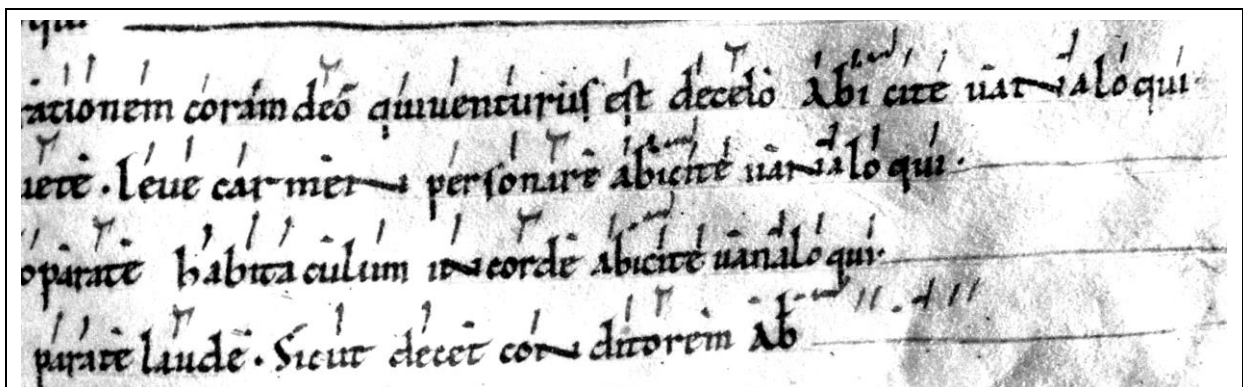 qui
rationem coram deo qui venturus est decelo Abicite uana loqui.
iete. leue carmen personare abicite uana loqui.
oparate habitaculum in corde abicite uana loqui.
parate laude. Sicut decet conditorem Ab